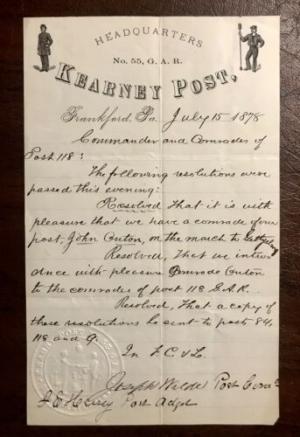 HEADQUARTERS
No. 55, G. A. R.
KEARNEY POST,
Frankford, Pa. July 15 1878
Commander and Comrades of
Post 118:
The following resolutions were
passed this evening:
Resolved That it is with
pleasure that we have a comrade from
post, John Guton, on the march to Gettysburg
Resolved, that we intro
duce with pleasure Comrade Guton
to the comrades of post 118 G.A.R.
Resolved, That a copy of
these resolutions be sent to posts 84,
118 and 9.
In F. C. & L.
Joseph Wilde Post Com
Post Adjt